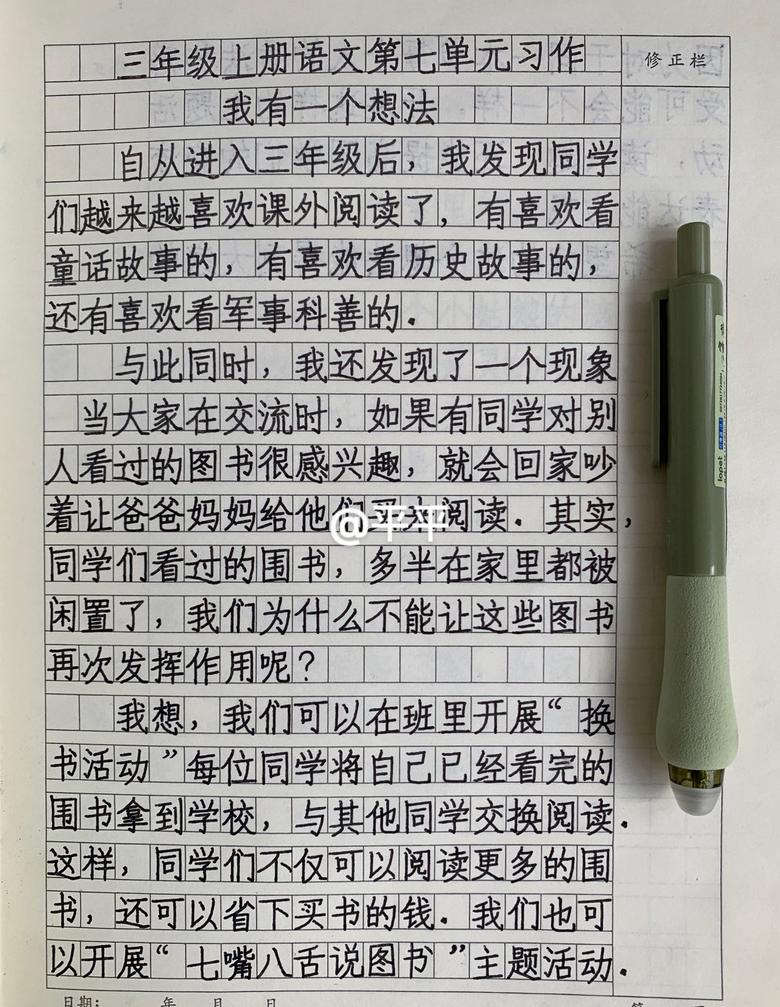 三年级上册语文第七单元习作
修正栏
我有一个想法
自从进入三年级后，我发现同学
们越来越喜欢课外阅读了，有喜欢看
童话故事的，有喜欢看历史故事的，
还有喜欢看军事科善的.
与此同时，我还发现了一个现象
当大家在交流时，如果有同学对别
人看过的图书很感兴趣，就会回家吵
着让爸爸妈妈给他们买来阅读. 其实，
@平平
同学们看过的围书，多半在家里都被
闲置了，我们为什么不能让这些图书
再次发挥作用呢？
我想，我们可以在班里开展“换
书活动”每位同学将自己已经看完的
围书拿到学校，与其他同学交换阅读.
这样，同学们不仅可以阅读更多的围
书，还可以省下买书的钱. 我们也可
以开展“七嘴八舌说图书”主题活动.
日期： 年 月 日